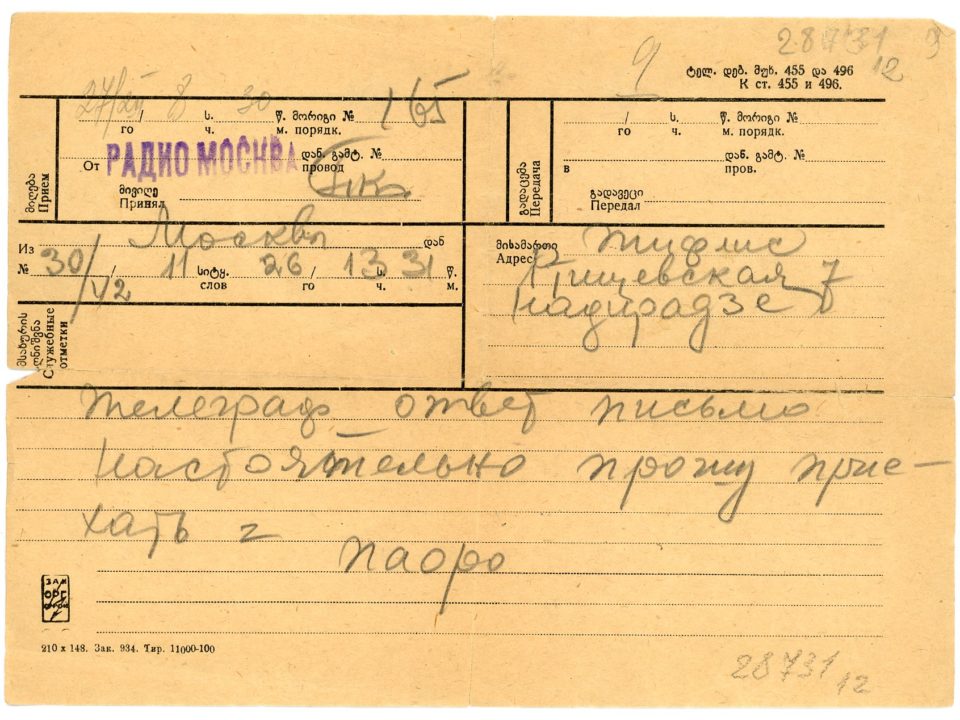 28731 9
12
9
ტელ. დებ. მუხ. 455 და 496
К ст. 455 и 496.
27/XII 8 30 165
/ ს. წ. მორიგი №
го ч. м. порядк.
От РАДИО МОСКВА დან. გამტ. №
провод
მივიღე
Принял
მიღება
Прием
/ ს. წ. მორიგი №
го ч. м. порядк.
დან. გამტ. №
в пров.
გადავეცი
Передал
გადაცემა
Передача
Из Москвы დან
№ 30/42 / 11 სიტყ. 26 / 13 ს. 31 წ.
слов го ч. м.
მისამართი Тифлис
Адрес 7
Надирадзе
მსახურის აღნიშვნა
Служебные отметки
телеграф ответ письмо
настоятельно прошу прие-
хать =
паоро
ЗАК
ОРГ
210 x 148. Зак. 934. Тир. 11000-100
28731
12